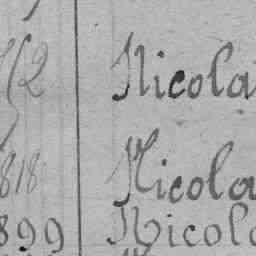 52 Nicola
818 Nicola
899 Nicola